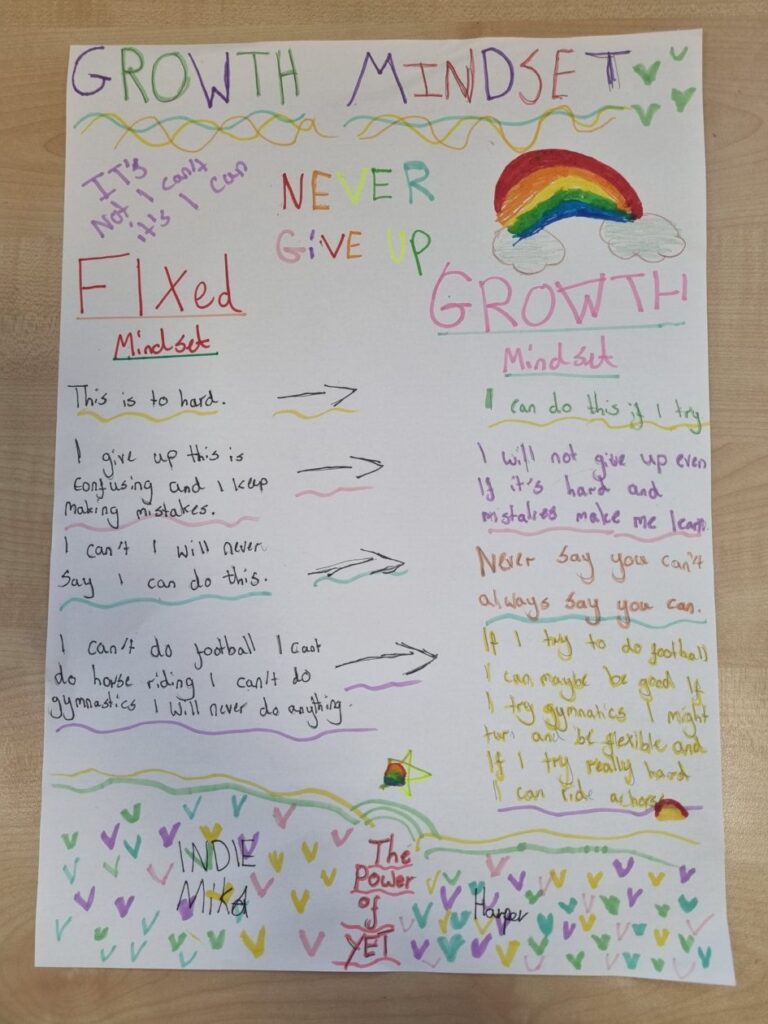 GROWTH MINDSET
IT's
Not I can't
it's I can
NEVER
GIVE UP
FIXed
Mindset
GROWTH
Mindset
This is to hard.
I can do this if I try
I give up this is
confusing and I keep
making mistakes.
I will not give up even
If it's hard and
mistakes make me learn.
I can't I will never
say I can do this.
Never say you can't
always say you can.
I can't do football I cant
do horse riding I can't do
gymnastics I will never do anything.
If I try to do football
I can maybe be good If
I try gymnatics I might
turn and be flexible and
If I try really hard
I can ride a horse
INDIE
MikA
The
Power
of
YET
Harper